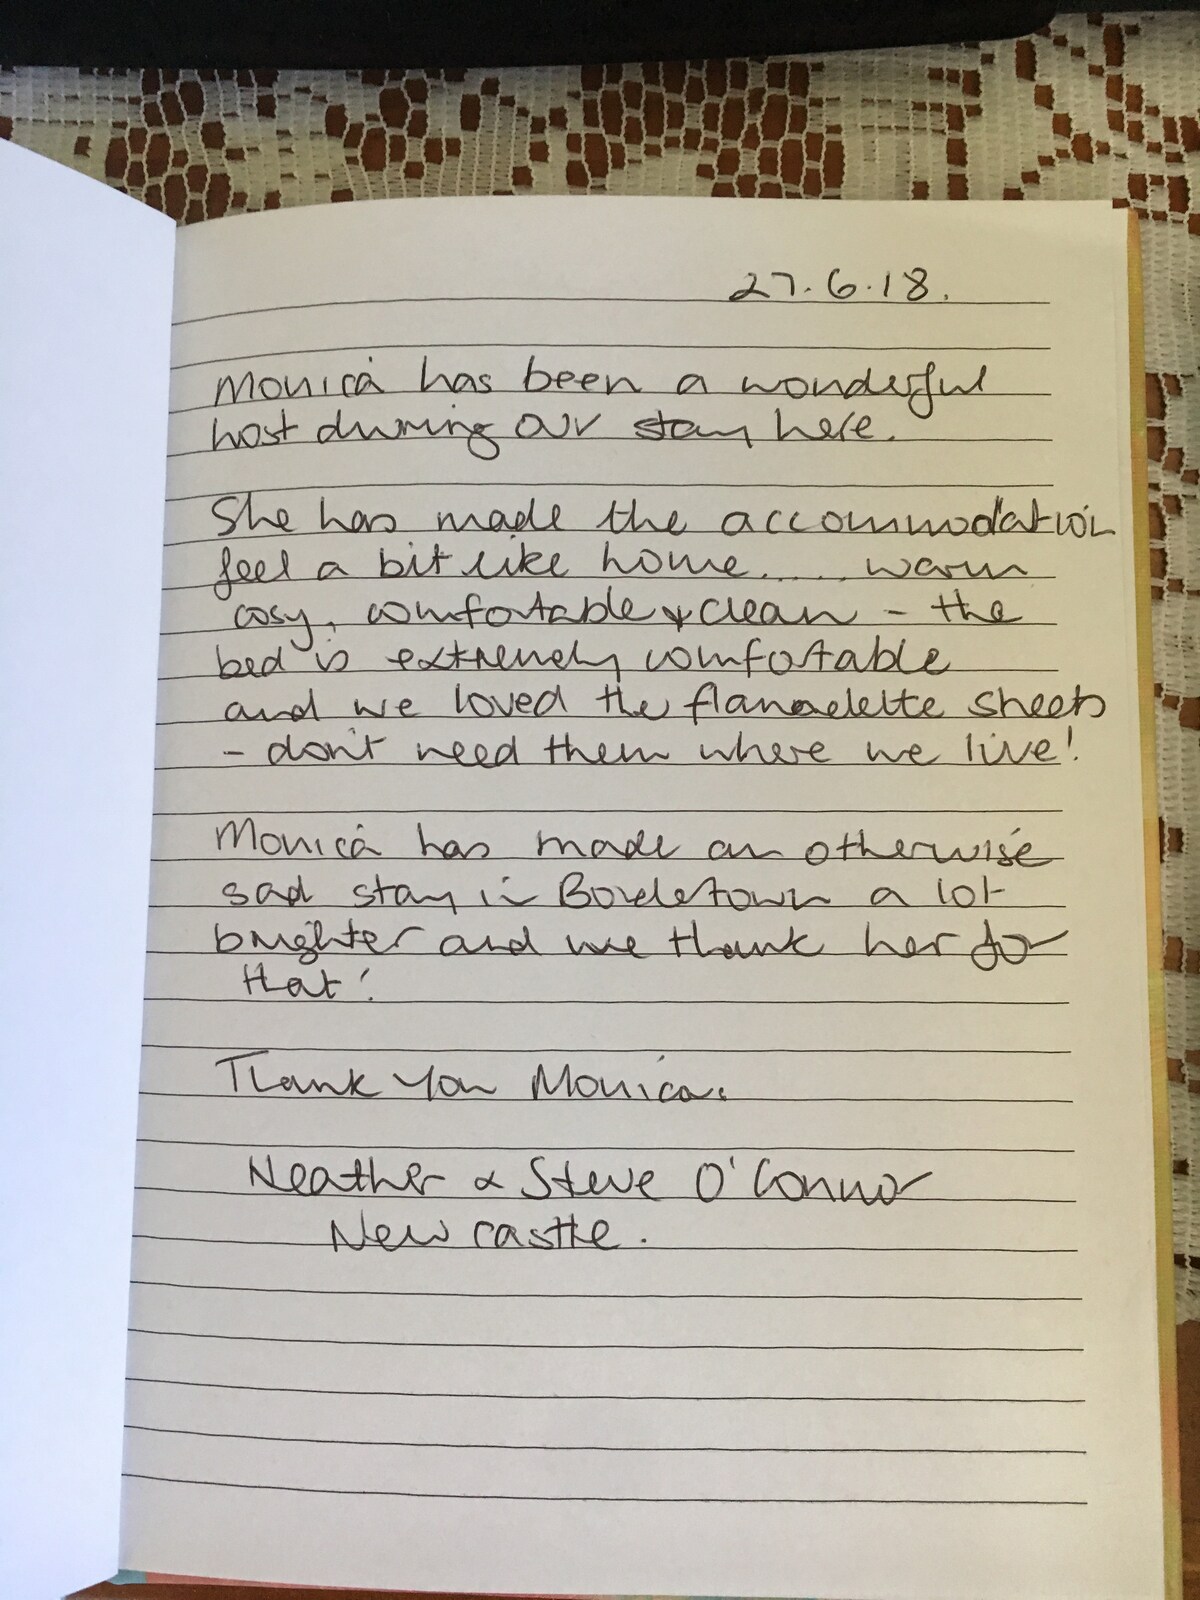 27.6.18.
Monica has been a wonderful
host during our stay here.
She has made the accommodation
feel a bit like home..... warm
cosy, comfortable & clean - the
bed is extremely comfortable
and we loved the flanadelette sheets
- don't need them where we live!
Monica has made an otherwise
sad stay in Bordertown a lot
brighter and we thank her for
that!
Thank You Monica.
Heather & Steve O'Connor
Newcastle.